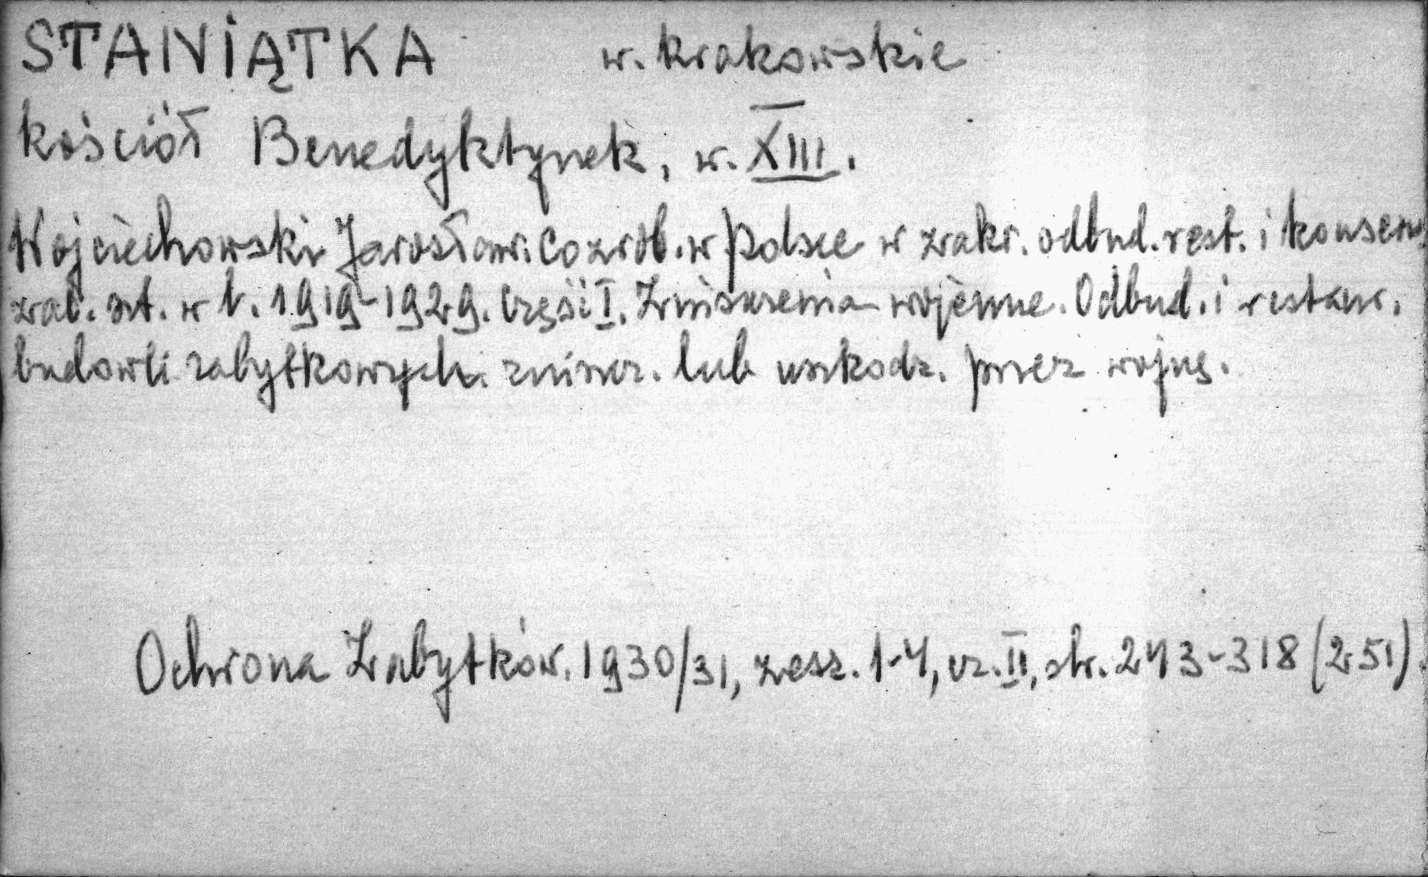 STANIĄTKA w. krakowskie
kościół Benedyktynek, w. XIII.
Wojciechowski Jarosław. Co zrob. w Polsce w zakr. odbud. rest. i konserw
zab. szt. w l. 1919-1929. Część I. Zniszczenia wojenne. Odbud. i restaur.
budowli zabytkowych zniszcz. lub uszkodz. przez wojnę.
Ochrona Zabytków. 1930/31, zesz. 1-4, cz. II, str. 243-318 (251).